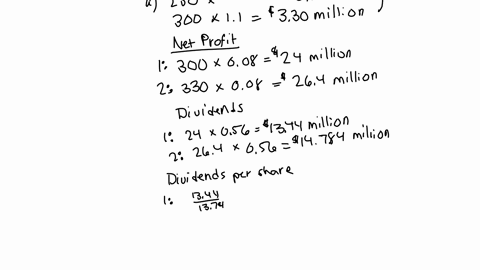 a) 200 ×
300 × 1.1 = $3.30 million
Net Profit
1: 300 × 0.08 = $24 million
2: 330 × 0.08 = $26.4 million
Dividends
1: 24 × 0.56 = $13.44 million
2: 26.4 × 0.56 = $14.784 million
Dividends per share
1: 13.44/13.74